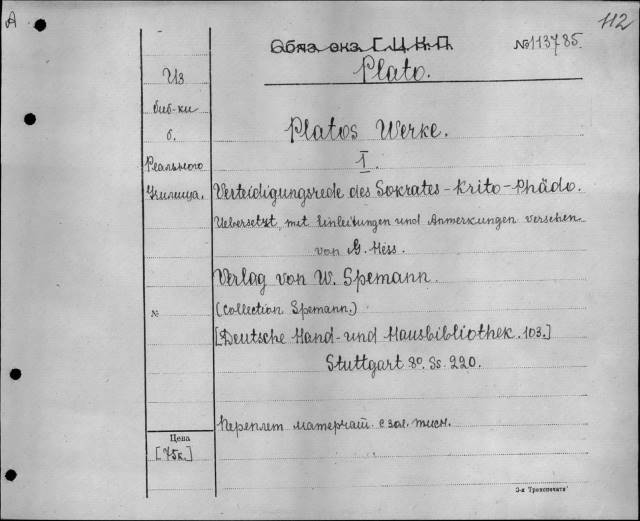 А
112
Обяз. экз. Г.Ц.К.П.
№113785.
Plato.
Из
биб-ки
б.
Реального
Училища.
Platos Werke.
I.
Verteidigungsrede des Sokrates-Krito-Phädo.
Uebersetzt, mit Einleitungen und Anmerkungen versehen
von G. Hess.
Verlag von W. Spemann.
№
(Collection Spemann.)
[Deutsche Hand- und Hausbibliothek. 103.]
Stuttgart 8º. Ss. 220.
Переплет матерчат. с зол. тисн.
Цена
[75к.]
3-я Транспечати